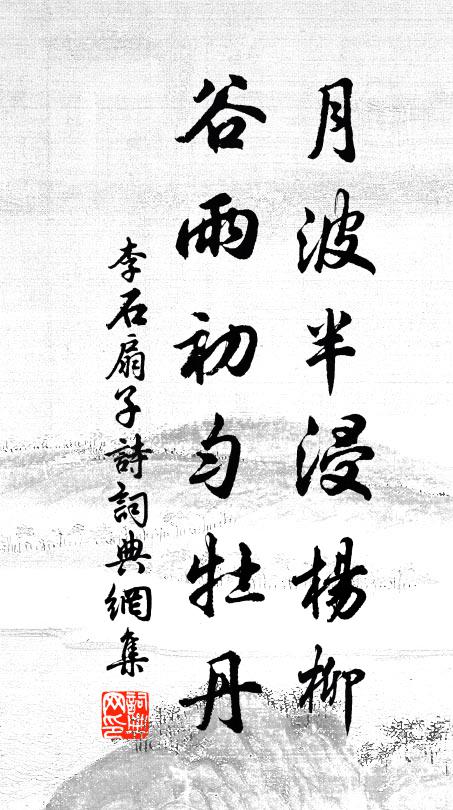 月波半浸楊柳
谷雨初勻牡丹
李石扇子詩詞典網集